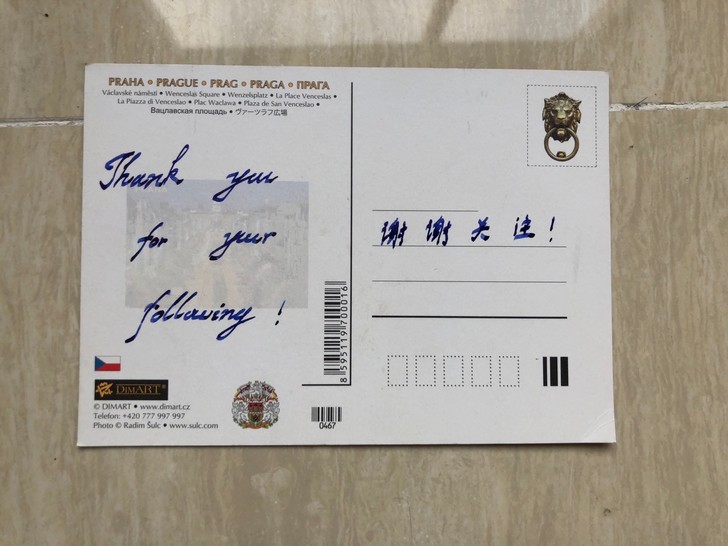 PRAHA • PRAGUE • PRAG • PRAGA • ПРАГА
Václavské náměstí • Wenceslas Square • Wenzelsplatz • La Place Venceslas •
La Piazza di Venceslao • Plac Wacława • Plaza de San Venceslao •
Вацлавская площадь • ヴァーツラフ広場
Thank you
for your
following !
谢谢关注!
8595119700016
DIMART®
© DIMART • www.dimart.cz
Telefon: +420 777 997 997
Photo © Radim Šulc • www.sulc.com
0467